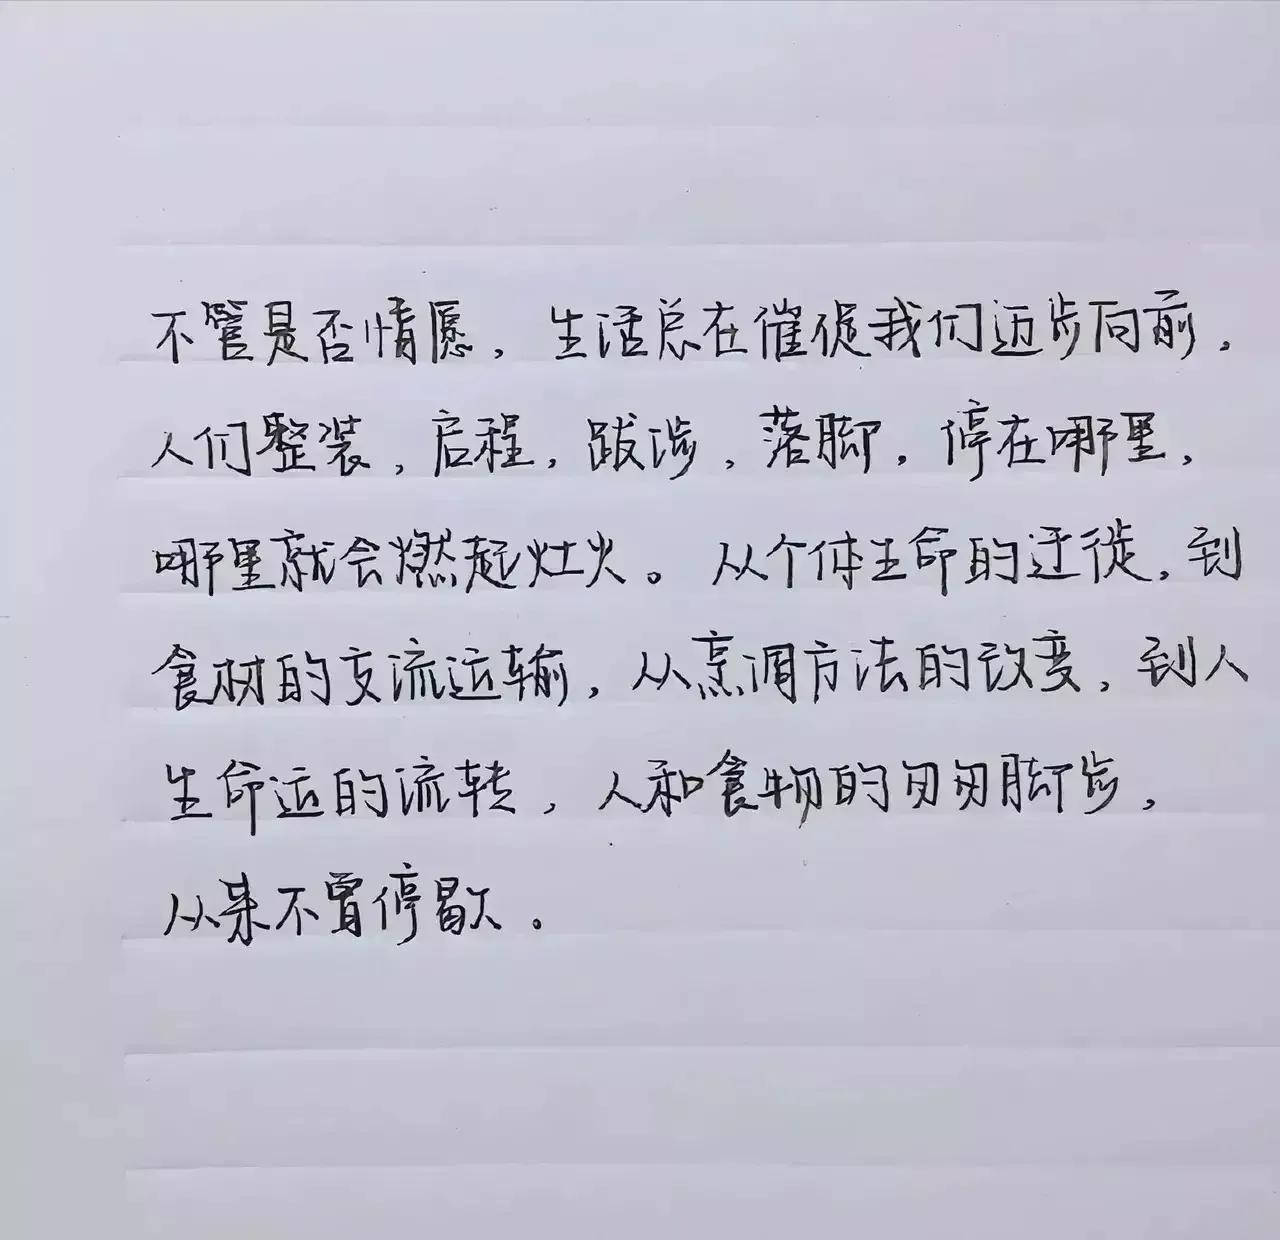 不管是否情愿，生活总在催促我们迈步向前，
人们整装，启程，跋涉，落脚，停在哪里，
哪里就会燃起灶火。从个体生命的迁徙，到
食材的交流运输，从烹调方法的改变，到人
生命运的流转，人和食物的匆匆脚步，
从来不曾停歇。